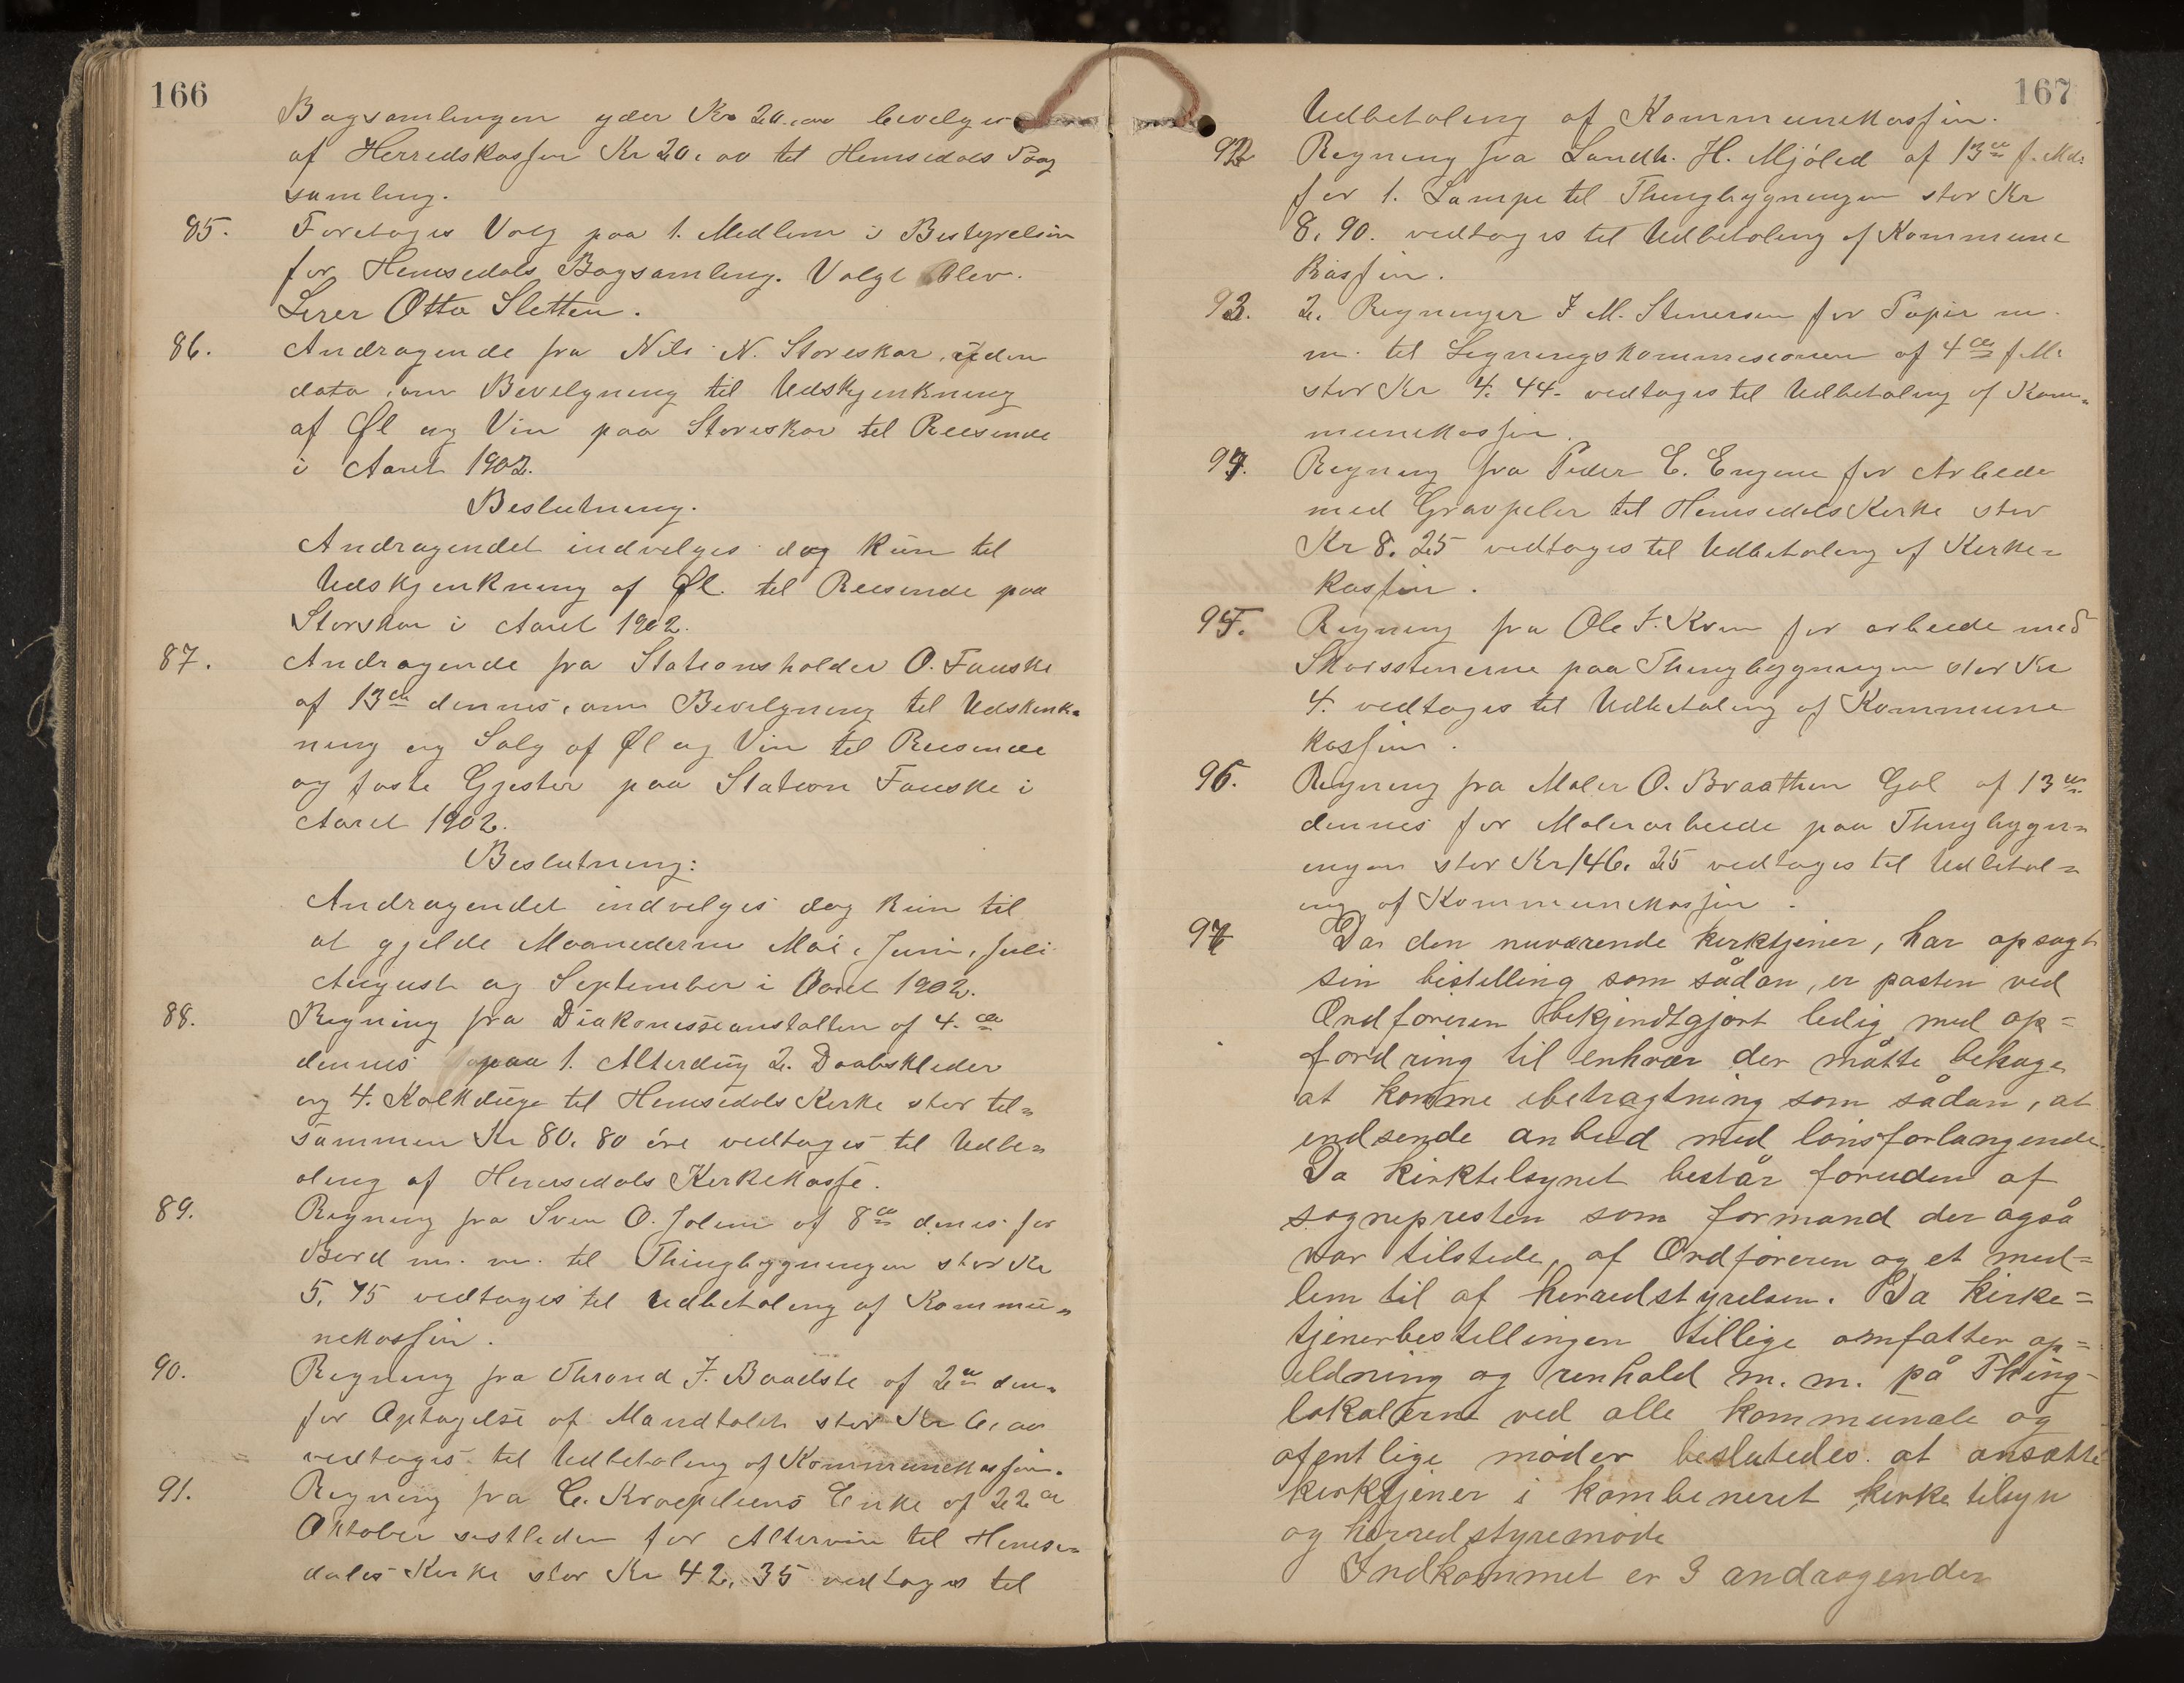 166
Bogsamlingen yder Kr 20,00 bevelges
af Herredskassen Kr 20,00 til Hemsedals Bog
samling.
85. Foretoges Valg paa 1. Medlem i Bestyrelsen
for Hemsedals Bogsamling. Valgt blev.
Lerer Otto Sletten.
86. Andragende fra Nils N. Storeskar, uden
data, om Bevelgning til Udskjenkning
af Øl og Vin paa Storeskar til Reisende
i Aaret 1902.
Beslutning.
Andragendet indvelges dog kun til
Udskjenkning af Øl. til Reisende paa
Storskar i Aaret 1902.
87. Andragende fra Stationsholder O. Fauske
af 13de dennes, om Bevelgning til Udskenk=
ning og Salg af Øl og Vin til Reisende
og faste Gjester paa Station Fauske i
Aaret 1902.
Beslutning:
Andragendet indvelges dog kun til
at gjelde Maanederne Mai, Juni, Juli
August og September i Aaret 1902.
88. Regning fra Diakonisseanstalten af 4.de
dennes paa 1. Alterdug 2. Daabskleder
og 4. Kalkduge til Hemsedals Kirke stor til=
sammen Kr 80,80 öre vedtoges til Udbe=
aling af Hemsedals Kirkekasse.
89. Regning fra Sven O. Jolem af 8de denes for
Bord m. m. til Thingbygningen stor Kr
5,75 vedtoges til Udbetaling af Kommu=
nekassen.
90. Regning fra Thrond J. Baadste af 2de den=
for Optagelse af Mandtalet stor Kr 6,00
vedtoges til Udbetaling af Kommunekassen.
91. Regning fra C. Kraepeliens Enke af 22de
Oktober sistleden for Altervin til Hemse=
dales Kirke stor Kr 42,35 vedtoges til
167
Udbetaling af Kommunekassen.
92 Regning fra Landh. H. Mjöled af 13de f. Md.
for 1. Lampe til Thingbygningen stor Kr
8,90. vedtoges til Udbetaling af Kommune
kassen.
93. 2. Regninger J M. Stenersen for Papir m.
m. til Ligningskommisionen af 4de f. M.
stor Kr 4.44. vedtoges til Udbetaling af Kom=
munekassen.
94. Regning fra Peder E. Engene for Arbeide
med Gravpeler til Hemsedals Kirke stor
Kr 8.25 vedtoges til Udbetaling af Kirke=
kassen.
95. Regning fra Ole T. Kvam for arbeide med
Skorstenerne paa Thingbygningen stor Kr
4. vedtoges til Udbetaling af Kommune
kassen.
96. Regning fra Maler O. Braathen Gol af 13de
dennes for Malerarbeide paa Thingbygn=
ingen stor Kr 146,25 vedtoges til Udbetal=
ing af Kommunekassen.
97 Da den nuværende kirketjener, har opsagt
sin bistilling som sådan, er posten ved
Ordföreren bekjendtgjort ledig med op=
fordring til enhver der måtte behage
at komme ibetragtning som sådan, at
indsende anbud med lönsforlangende.
Da kirketilsynet består foruden af
sognepresten som formand der også
var tilstede, af Ordföreren og et med=
lem til af herredstyrelsen. Da kirke=
tjenerbestillingen tillige omfatter op=
ildning og renhold m. m. på Thing=
lokalerne ved alle kommunale og
ofentlige möder beslutedes at ansætte
kirketjener i kombineret kirke tilsyn
og herredstyremöde
Indkommet er 3 andragender